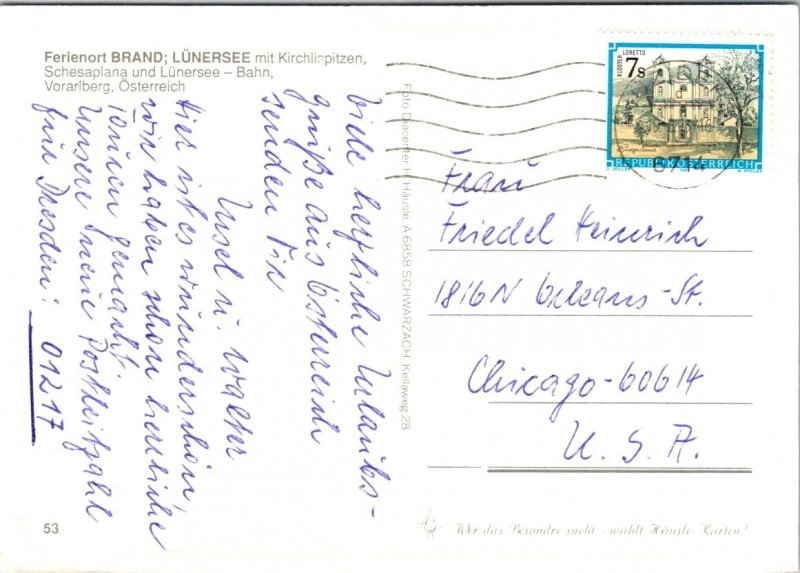 Ferienort BRAND; LÜNERSEE mit Kirchlispitzen,
Schesaplana und Lünersee – Bahn,
Vorarlberg, Österreich
viele herzliche Urlaubs-
grüße aus Österreich
senden Dir
Ursel u. Walter
Hier ist es wunderschön,
wir haben schon herrliche
Touren gemacht.
Unsere neue Postleitzahl
für Dresden: 01217
53
Foto Diacenter H. Häusle, A 6858 SCHWARZACH, Kellaweg 28
KLOSTER LORETTO
7s
Burgenland
REPUBLIK ÖSTERREICH
Frau
Friedel Heinrich
1816 N Orleans-St.
Chicago-60614
U. S. A.
Wer das Besondre sucht – wählt Häusle-Karten!